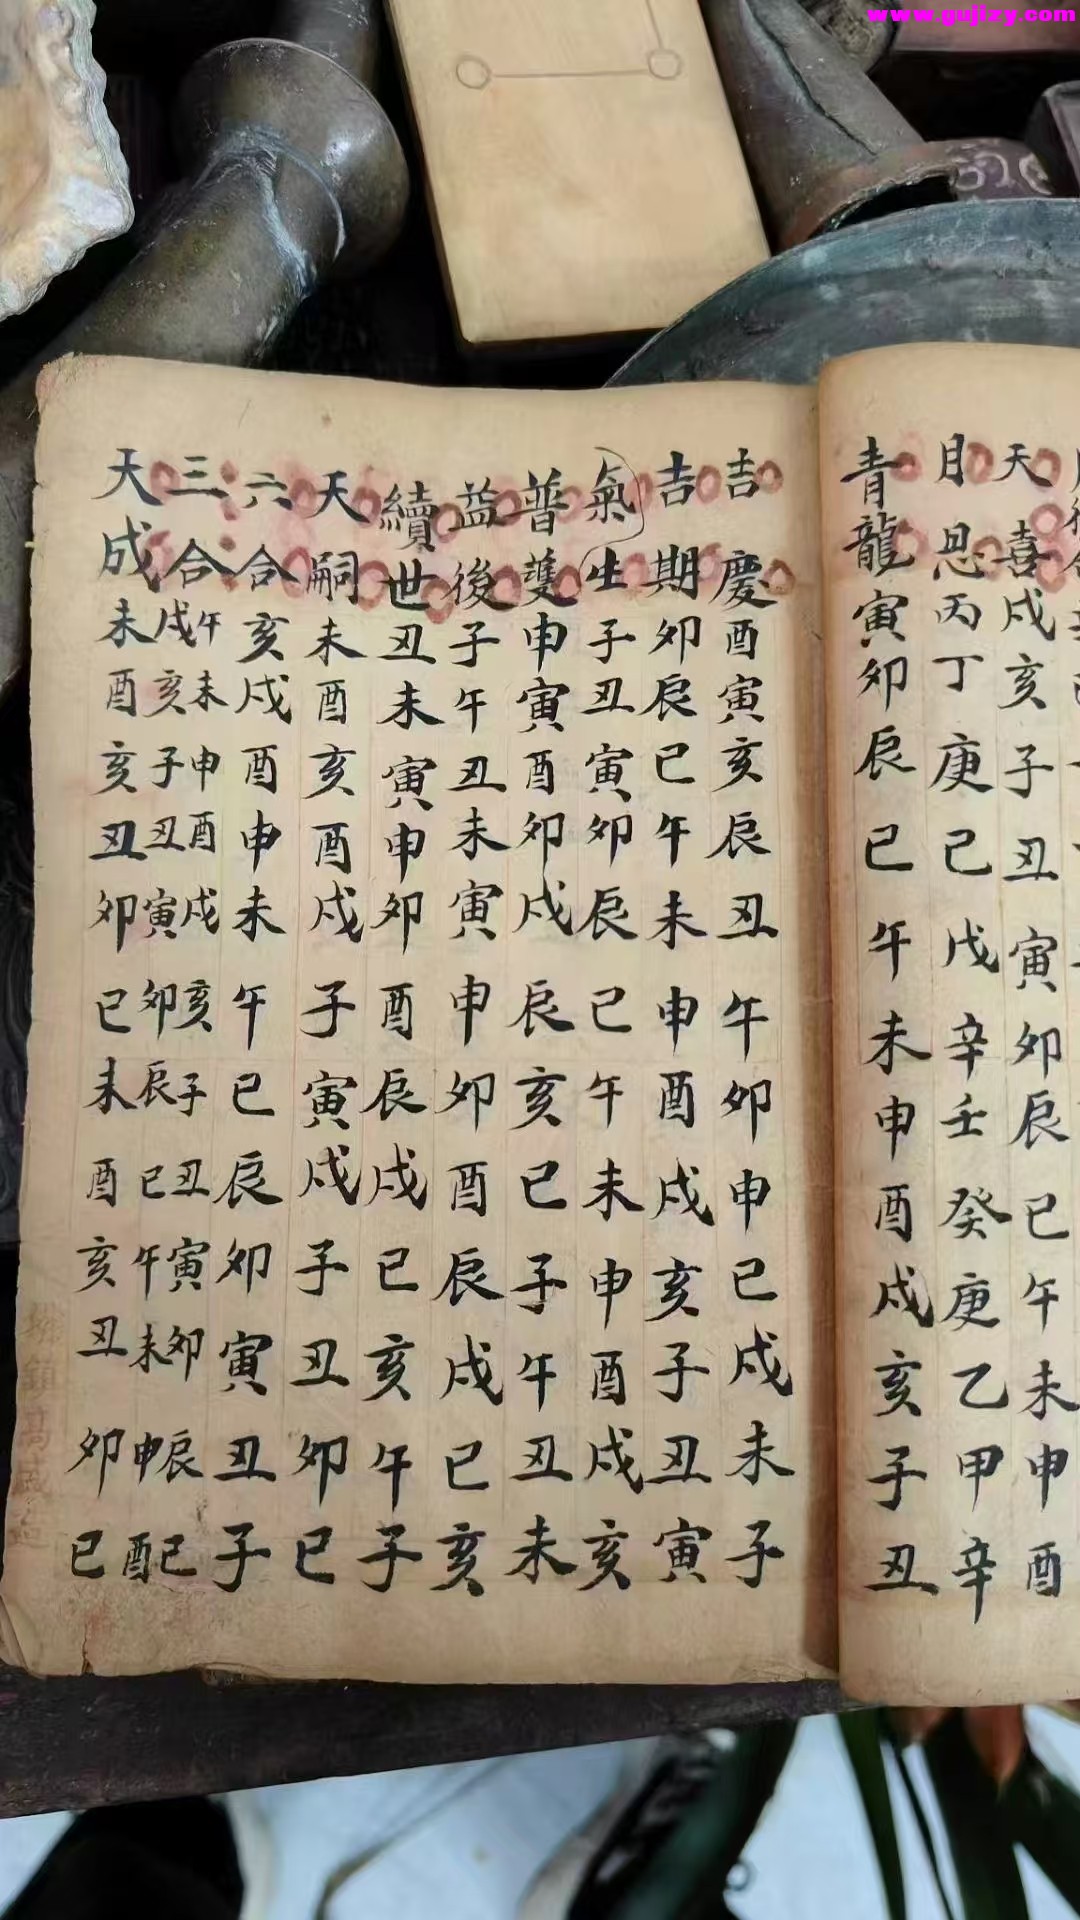 www.gujizy.com
天喜戌亥子丑寅卯辰巳午未申酉
月恩丙丁庚己戊辛壬癸庚乙甲辛
青龍寅卯辰巳午未申酉戌亥子丑
吉慶酉寅亥辰丑午卯申巳戌未子
吉期卯辰巳午未申酉戌亥子丑寅
氣生子丑寅卯辰巳午未申酉戌亥
普護申寅酉卯戌辰亥巳子午丑未
益後子午丑未寅申卯酉辰戌巳亥
續世丑未寅申卯酉辰戌巳亥午子
天嗣未酉亥酉戌子寅戌子丑卯巳
六合亥戌酉申未午巳辰卯寅丑子
三合午未申酉戌亥子丑寅卯辰巳
戌亥子丑寅卯辰巳午未申酉
天成未酉亥丑卯巳未酉亥丑卯巳